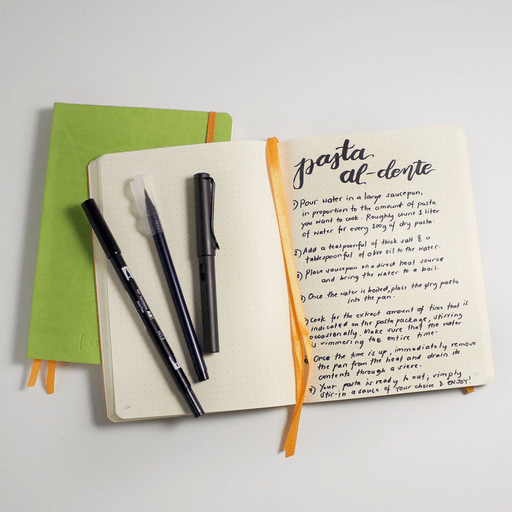 pasta
al-dente
1) Pour water in a large saucepan,
in proportion to the amount of pasta
you want to cook. Roughly count 1 liter
of water for every 100g of dry pasta
2) Add a teaspoonful of thick salt & a
tablespoonful of olive oil to the water.
3) Place saucepan on a direct heat source
and bring the water to a boil.
Once the water is boiled, place the dry pasta
into the pan.
Cook for the extract amount of time that is
indicated on the pasta package, stirring
occasionally. Make sure that the water
is simmering the entire time.
Once the time is up, immediately remove
the pan from the heat and drain its
contents through a sieve.
Your pasta is ready to eat, simply
stir-in a sauce of your choice & ENJOY!